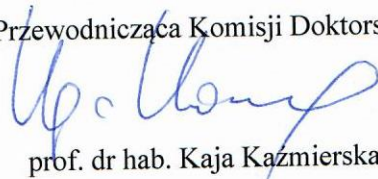 Przewodnicząca Komisji Doktors
prof. dr hab. Kaja Kaźmierska